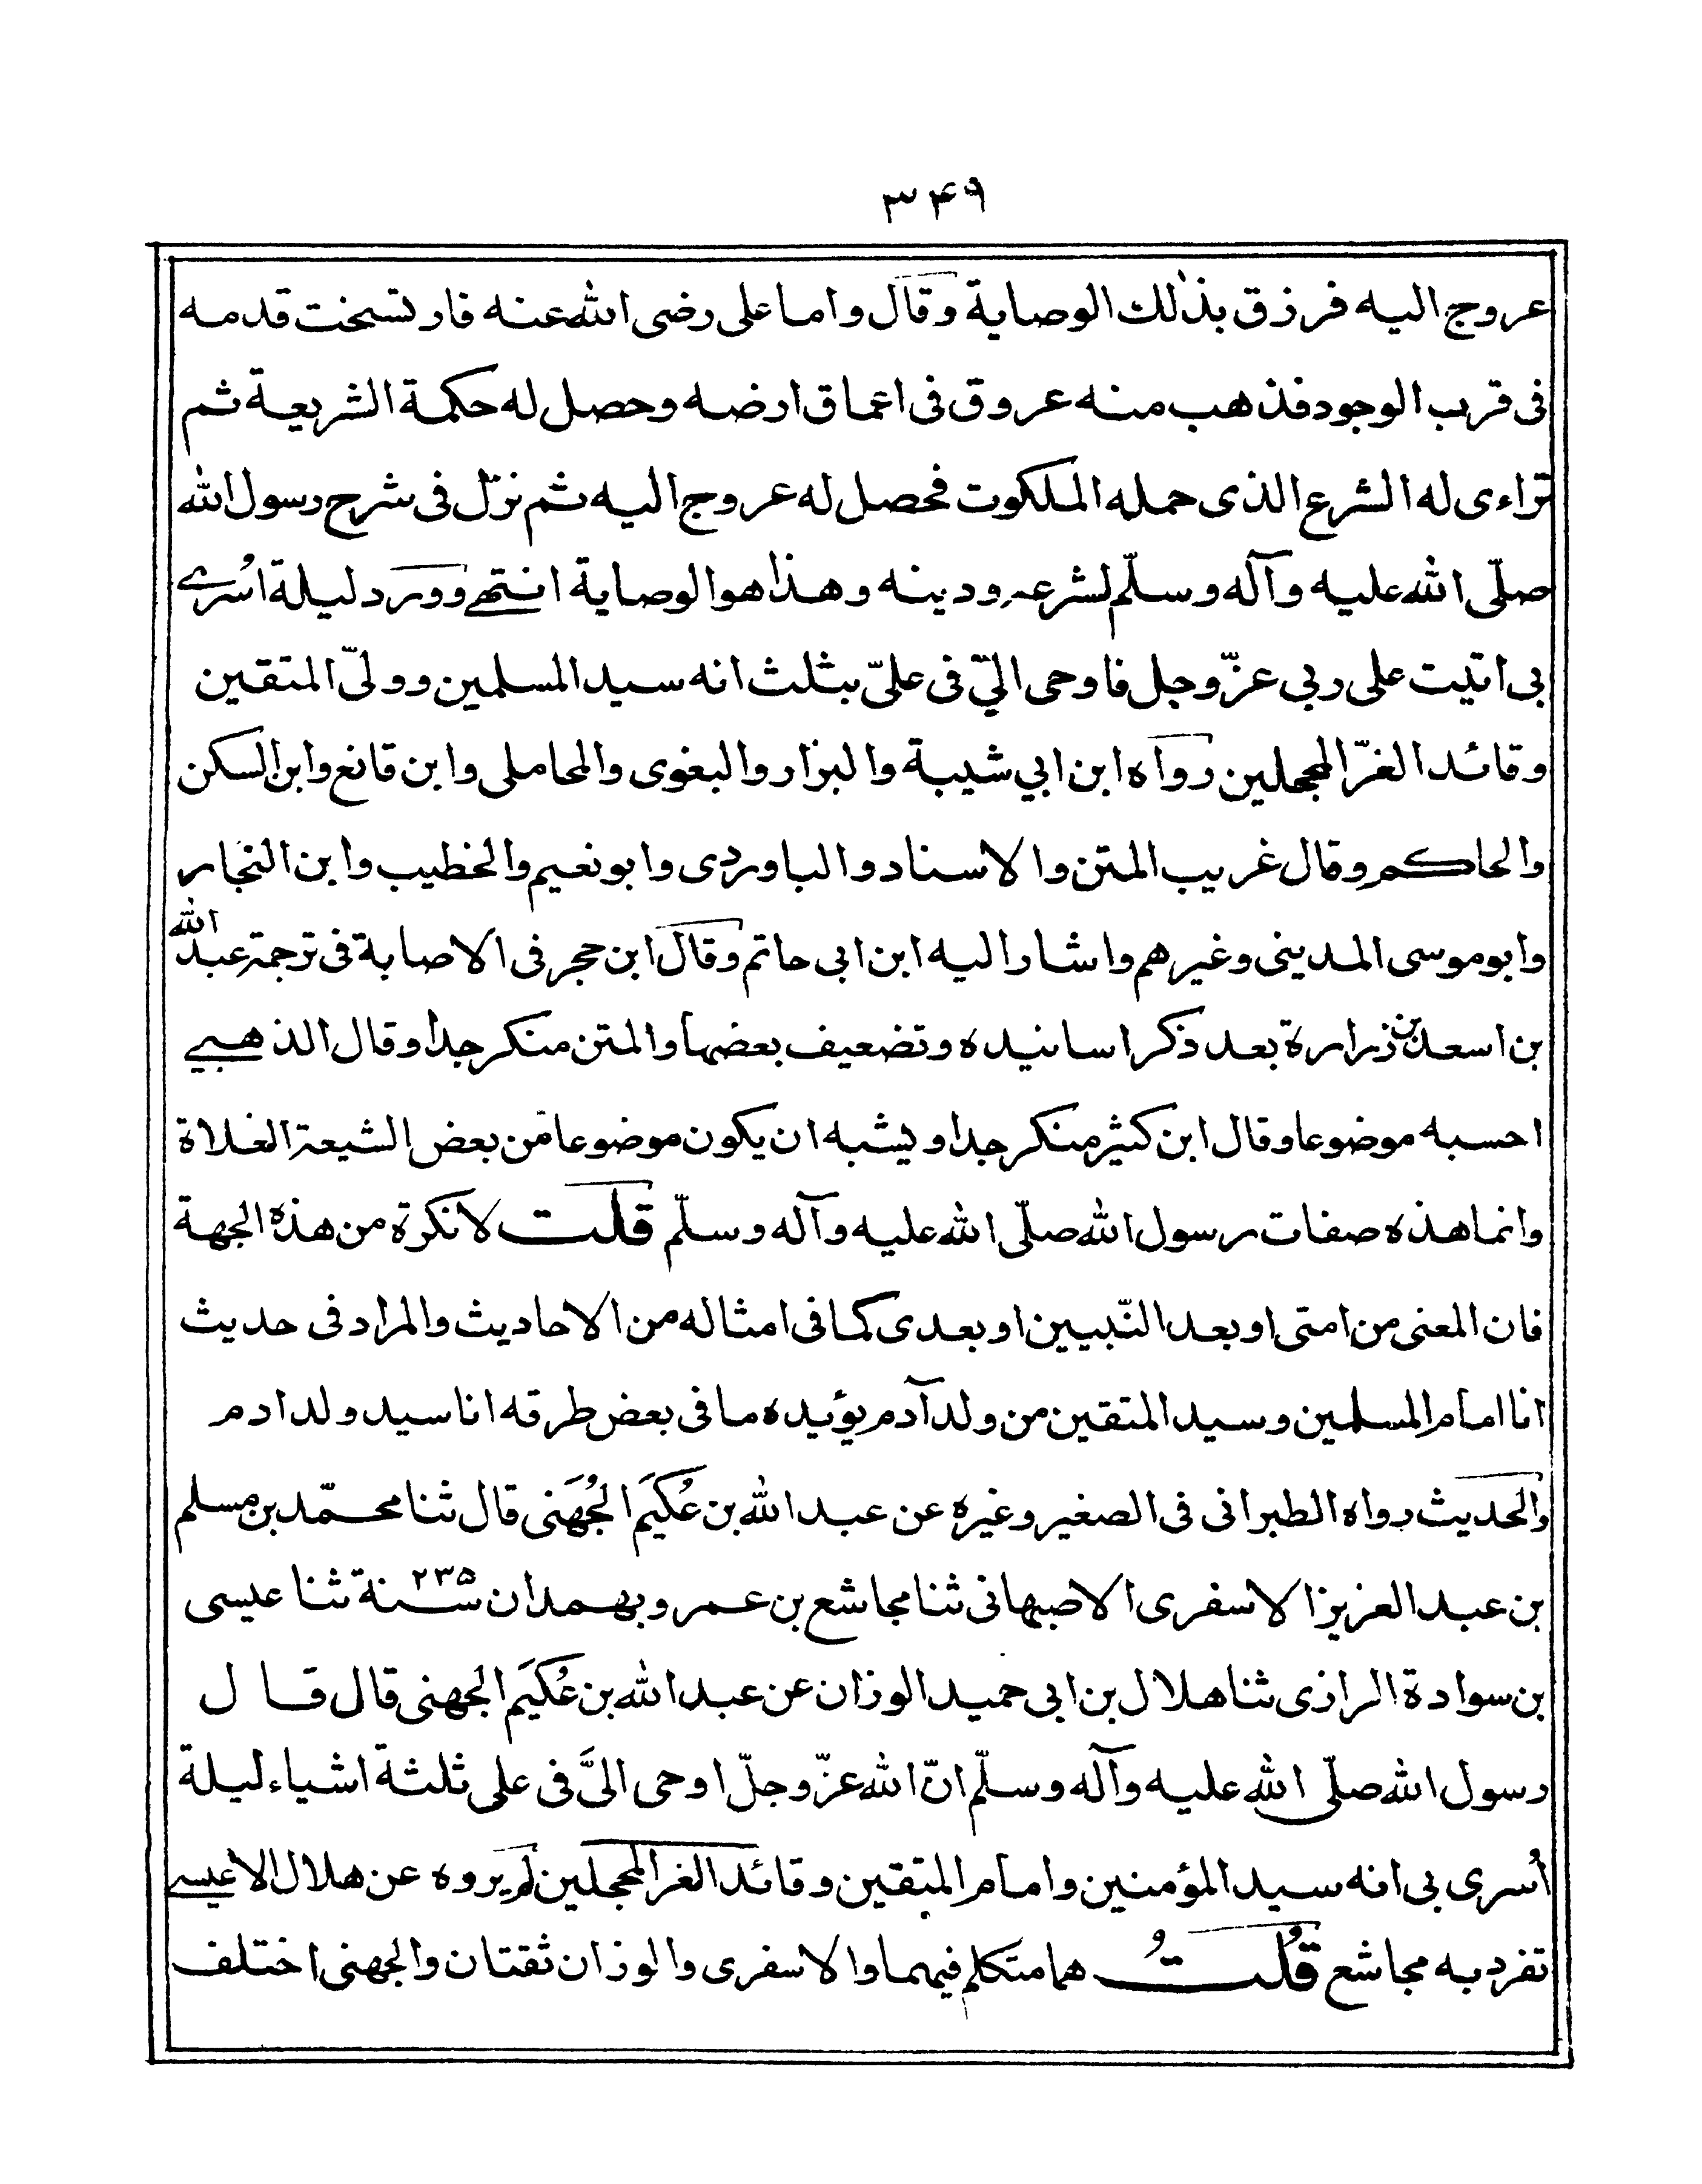 ۳۴۹
عروج اليه فرزق بذٰلك الوصاية وقال واما على رضى الله عنه فارتسخت قدمه
فى قرب الوجود فذهب منه عروق فى اعماق ارضه وحصل له حكمة الشريعة ثم
تراءى له الشرع الذى حمله الملكوت فحصل له عروج اليه ثم نزّل فى شرح رسول الله
صلّى الله عليه وآله وسلّم لشرعه ودينه وهذا هوا لوصاية انتهى وورد ليلة اُسرى
بى اتيت على ربى عزّ وجل فاوحى الىّ فى علىّ بثلث انه سيد المسلمين وولىّ المتقين
وقائد الغرّ المحجلين رواه ابن ابي شيبة والبزار والبغوى والمحاملى وابن قانع وابن السكن
والحاكم وقال غريب المتن والاسناد والباوردى وابو نعيم والخطيب وابن النجار
وابو موسى المدينى وغيرهم واشار اليه ابن ابى حاتم وقال ابن حجر فى الاصابة فى ترجمة عبد الله
بن اسعد بن زرارة بعد ذكر اسانيده وتضعيف بعضها والمتن منكر جدا وقال الذهبى
احسبه موضوعا وقال ابن كثير منكر جدا ويشبه ان يكون موضوعا من بعض الشيعة الغلاة
وانما هذه صفات رسول الله صلّى الله عليه وآله وسلّم قلت لا نكرة من هذه الجهة
فان المعنى من امتى او بعد النّبيين او بعدى كما فى امثاله من الاحاديث والمراد فى حديث
انا امام المسلمين وسيد المتقين من ولد آدم يؤيده ما فى بعض طرقه انا سيد ولد ادم
والحديث رواه الطبرانى فى الصغير وغيره عن عبد الله بن عُكَيَم الجُهَنى قال ثنا محمّد بن مسلم
بن عبد العزيز الاسفرى الاصبهانى ثنا مجاشع بن عمرو بهمدان سنة ۲۳۵ ثنا عيسى
بن سوادة الرازى ثنا هلال بن ابى حميد الوزان عن عبد الله بن عُكَيَم الجهنى قال قال
رسول الله صلّى الله عليه وآله وسلّم انّ الله عزّ وجلّ اوحى الىَّ فى على ثلثة اشياء ليلة
اُسرى بى انه سيد المؤمنين وامام المتقين وقائد الغر المحجلين لم يروه عن هلال الا عيسى
تفرد به مجاشع قُلتُ هما متكلم فيهما والاسفرى والوزان ثقتان والجهنى اختلف